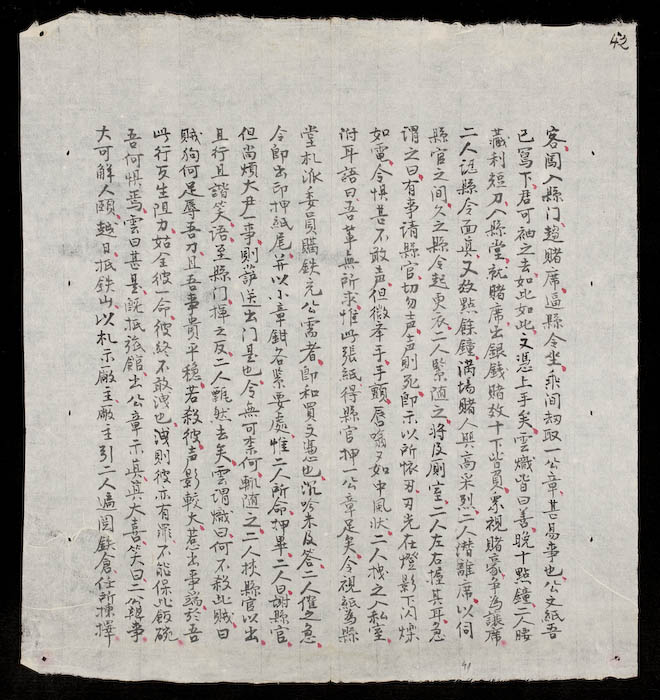 42
客闖入縣門趨賭席逼縣令坐乘间刼取一公章甚易事也公文紙吾
已寫下君可袖之去如此如此文憑上手矣雲熾皆曰善晚十點鐘二人腰
藏利短刀入縣堂就賭席出銀錢賭数十下皆負眾視賭豪爭為讓席
二人認縣令面真又数點餘鐘满場賭人興高采烈二人潛離席以伺
縣官之间久之縣令起更衣二人緊随之將及厠室二人左右握其耳急
謂之曰有事請縣官切勿声声則死即示以所懷刃刃光在燈影下闪爍
如電令惧甚不敢声但微牽手手顫唇喻又如中風状二人拽之入私室
附耳語曰吾革無所求惟此張紙得縣官押一公章足矣令視紙為縣
堂札派委員購鉄充公需者即和買文憑也沉吟未及答二人催之急
令即出印押紙尾并以小章鈐各紧要處惟二人所命押畢二人曰謝縣官
但尚煩大尹一事則護送出门是也令無可柰何軏随之二人挾縣官以出
且行且諧笑語至縣门揮之反二人飄然去矣雲謂熾曰何不殺此贼曰
贼狗何足辱吾刀且吾事貴平穏若殺彼声影較大惹出事端於吾
此行反生阻力姑全彼一命彼終不敢洩也洩則彼亦有罪不能保此飯碗
吾何惧焉雲曰甚是既抵旅館出公章示真真大喜笑曰二公辦事
大可解人頤越日抵鉄山以札示廠主廠主引二人遍閲鉄倉任所揀擇
41